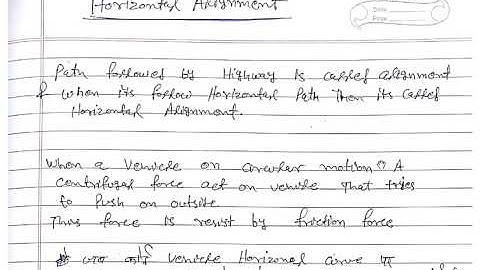 Horizontal Alignment
Date
Page
Path followed by Highway is called alignment
& when its follow Horizontal Path then its called
Horizontal Alignment.
When a Vehicle on circular motion A
centrifugal force act on vehicle that tries
to Push on outside
Thus force is resist by friction force
जब कोई vehicle Horizonal curve पर